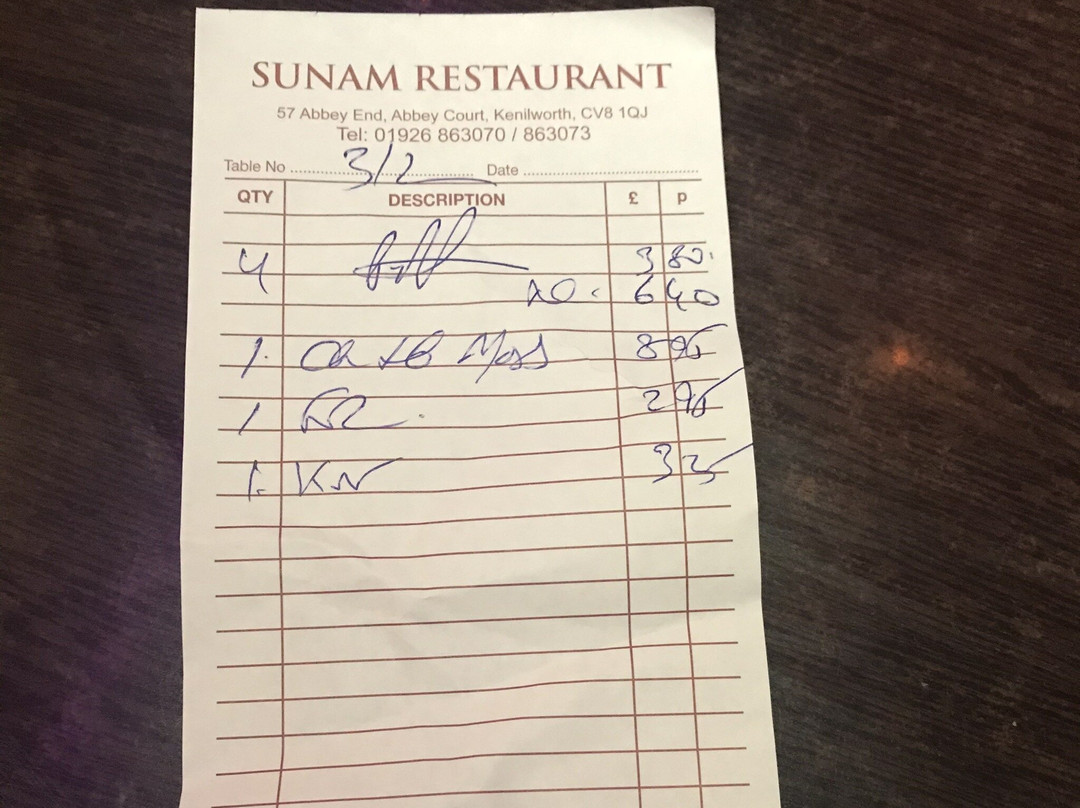 SUNAM RESTAURANT
57 Abbey End, Abbey Court, Kenilworth, CV8 1QJ
Tel: 01926 863070 / 863073
Table No 3/2 Date
QTY DESCRIPTION £ p
4 3 80
6 40
1. 8 95
1 2 95
1. KN 3 25